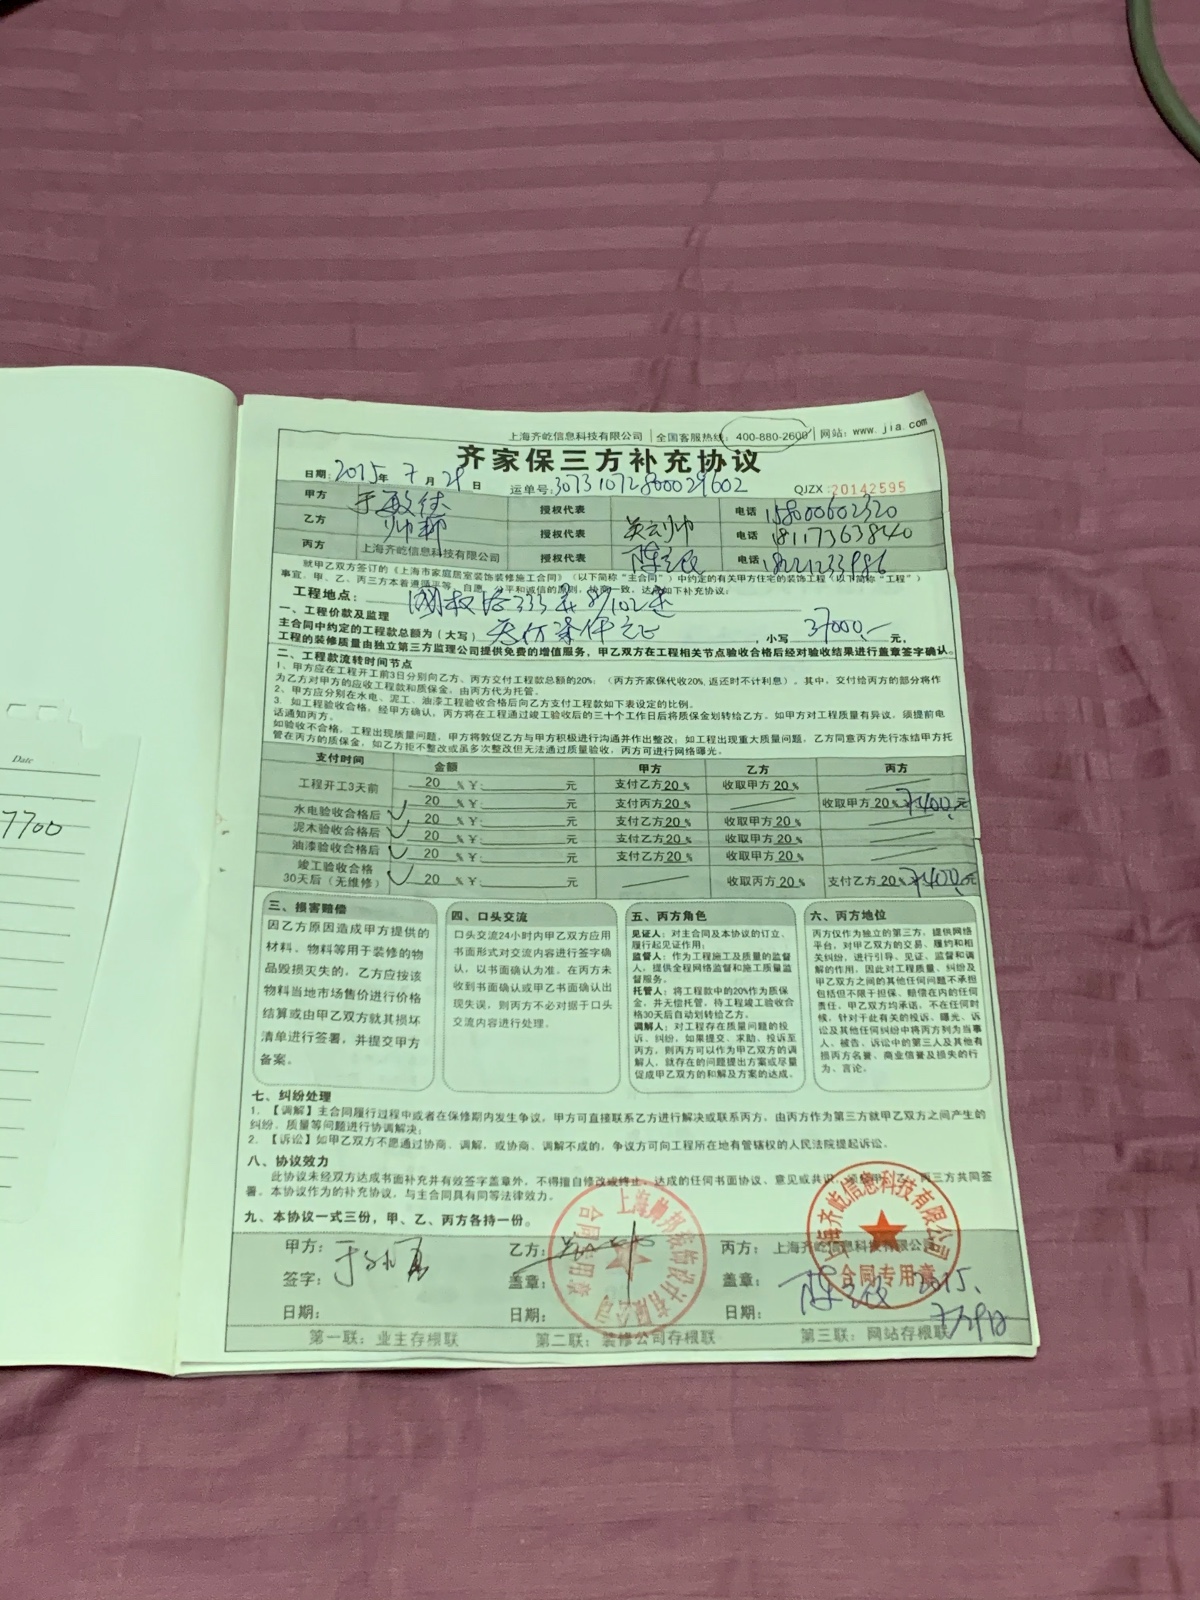 上海齐屹信息科技有限公司 全国客服热线：400-880-2600 网站：www.jia.com
齐家保三方补充协议
日期：2015年7月29日 运单号：30731072800029602 QJZX：20142595
甲方 授权代表 电话 15800602320
乙方 帅邦 授权代表 吴云帅 电话 18117363840
丙方 上海齐屹信息科技有限公司 授权代表 电话 18221233986
就甲乙双方签订的《上海市家庭居室装饰装修施工合同》（以下简称“主合同”）中约定的有关甲方住宅的装饰工程（以下简称“工程”）
事宜，甲、乙、丙三方本着遵循平等、自愿、公平和诚信的原则，协商一致，达成如下补充协议：
工程地点：国权路333弄
一、工程价款及监理
主合同中约定的工程款总额为（大写），小写 37000.— 元，
工程的装修质量由独立第三方监理公司提供免费的增值服务，甲乙双方在工程相关节点验收合格后经对验收结果进行盖章签字确认。
二、工程款流转时间节点
1、甲方应在工程开工前3日分别向乙方、丙方交付工程款总额的20%；（丙方齐家保代收20%，返还时不计利息），其中，交付给丙方的部分将作
为乙方对甲方的应收工程款和质保金，由丙方代为托管。
2、甲方应分别在水电、泥工、油漆工程验收合格后向乙方支付工程款如下表设定的比例。
3、如工程验收合格，经甲方确认，丙方将在工程通过竣工验收后的三十个工作日后将质保金划转给乙方，如甲方对工程质量有异议，须提前电
话通知丙方。
如验收不合格，工程出现质量问题，甲方将敦促乙方与甲方积极进行沟通并作出整改；如工程出现重大质量问题，乙方同意丙方先行冻结甲方托
管在丙方的质保金，如乙方拒不整改或虽多次整改但无法通过质量验收，丙方可进行网络曝光。
支付时间 金额 甲方 乙方 丙方
工程开工3天前 20 % ¥： 元 支付乙方20% 收取甲方20%
20 % ¥： 元 支付丙方20% 收取甲方20% 7400元
水电验收合格后 20 % ¥： 元 支付乙方20% 收取甲方20%
泥木验收合格后 20 % ¥： 元 支付乙方20% 收取甲方20%
油漆验收合格后 20 % ¥： 元 支付乙方20% 收取甲方20%
竣工验收合格
30天后（无维修） 20 % ¥： 元 收取丙方20% 支付乙方20% 7400元
三、损害赔偿
因乙方原因造成甲方提供的
材料、物料等用于装修的物
品毁损灭失的，乙方应按该
物料当地市场售价进行价格
结算或由甲乙双方就其损坏
清单进行签署，并提交甲方
备案。
四、口头交流
口头交流24小时内甲乙双方应用
书面形式对交流内容进行签字确
认，以书面确认为准，在丙方未
收到书面确认或甲乙书面确认出
现失误，则丙方不必对据于口头
交流内容进行处理。
五、丙方角色
见证人：对主合同及本协议的订立、
履行起见证作用；
监督人：作为工程施工及质量的监督
人，提供全程网络监督和施工质量监
督服务。
托管人：将工程款中的20%作为质保
金，并无偿托管，待工程竣工验收合
格30天后自动划转给乙方。
调解人：对工程存在质量问题的投
诉、纠纷，如果提交、求助、投诉至
丙方，则丙方可以作为甲乙双方的调
解人，就存在的问题提出方案或尽量
促成甲乙双方的和解及方案的达成。
六、丙方地位
丙方仅作为独立的第三方，提供网络
平台，对甲乙双方的交易、履约和相
关纠纷，进行引导、见证、监督和调
解的作用，因此对工程质量、纠纷及
甲乙双方之间的其他任何问题不承担
包括但不限于担保、赔偿在内的任何
责任，甲乙双方均承诺，不在任何时
候，针对于此有关的投诉、曝光、诉
讼及其他任何纠纷中将丙方列为当事
人、被告、诉讼中的第三人及其他有
损丙方名誉、商业信誉及损失的行
为、言论。
七、纠纷处理
1、【调解】主合同履行过程中或者在保修期内发生争议，甲方可直接联系乙方进行解决或联系丙方，由丙方作为第三方就甲乙双方之间产生的
纠纷、质量等问题进行协调解决；
2、【诉讼】如甲乙双方不愿通过协商、调解，或协商、调解不成的，争议方可向工程所在地有管辖权的人民法院提起诉讼。
八、协议效力
此协议未经双方达成书面补充并有效签字盖章外，不得擅自修改或终止，达成的任何书面协议、意见或共识，须经甲、乙、丙三方共同签
署。本协议作为的补充协议，与主合同具有同等法律效力。
九、本协议一式三份，甲、乙、丙方各持一份。
甲方： 乙方： 丙方：上海齐屹信息科技有限公司
签字： 盖章： 盖章： 2015.
日期： 日期： 日期：
上海帅邦装饰设计有限公司
合同专用章
上海齐屹信息科技有限公司
合同专用章
第一联：业主存根联 第二联：装修公司存根联 第三联：网站存根联
Date
7700